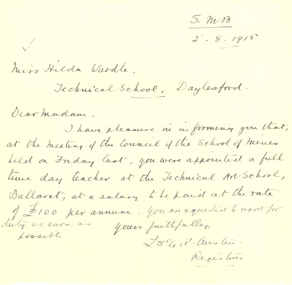 S. M. B
2 . 8 . 1915
Miss Hilda Wardle.
Technical School. Daylesford.
Dear Madam.
I have pleasure in informing you that,
at the Meeting of the Council of the School of Mines
held on Friday last, you were appointed a full
time day teacher at the Technical Art School,
Ballarat, at a salary to be paid at the rate
of £100 per annum. You are requested to report for
duty as soon as Yours faithfully
possible
Austin
Registrar